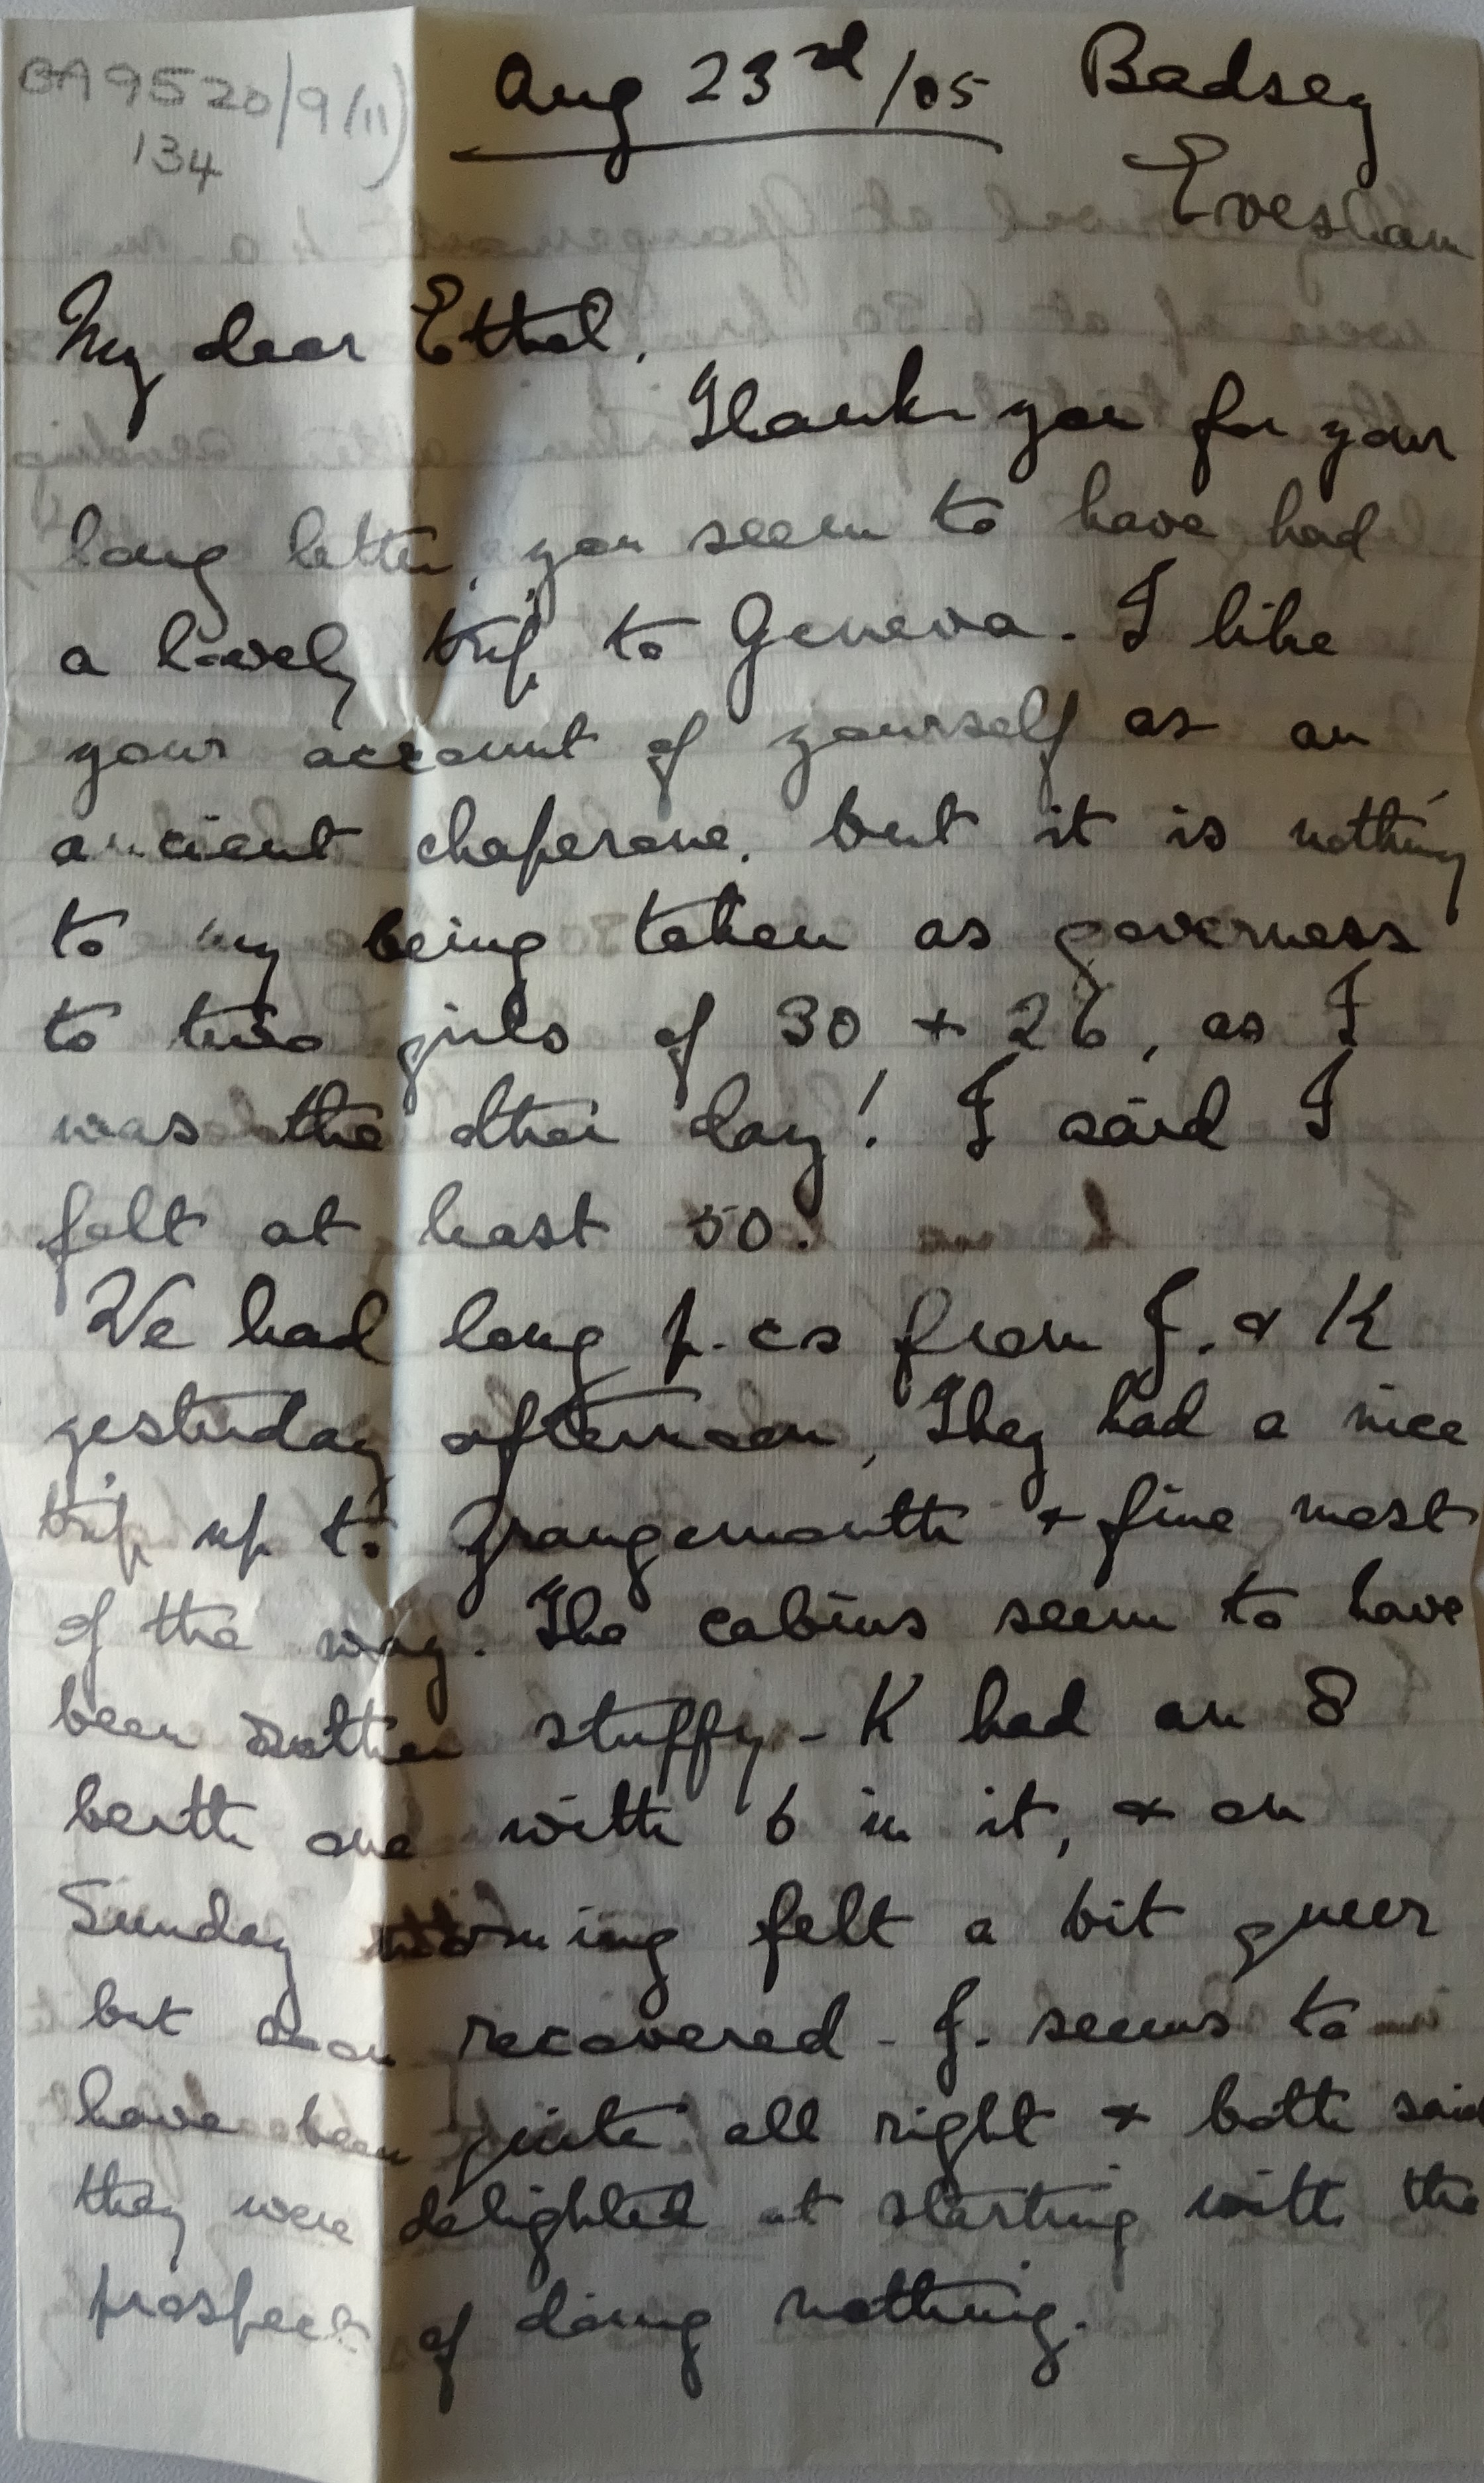 BA9520/9(11)
134
Aug 23rd/05 Badsey
Evesham
My dear Ethel,
Thank you for your
long letter, you seem to have had
a lovely trip to Geneva. I like
your account of yourself as an
ancient chaperone, but it is nothing
to my being taken as governess
to two girls of 30 + 26, as I
was the other day! I said I
felt at least 50.
We had long p.cs from J. & K
yesterday afternoon, They had a nice
trip up to Grangemouth + fine most
of the way. The cabins seem to have
been rather stuffy - K had an 8
berth one with 6 in it, & on
Sunday morning felt a bit queer
but soon recovered - J. seems to
have been quite all right & both said
they were delighted at starting with the
prospect of doing nothing.